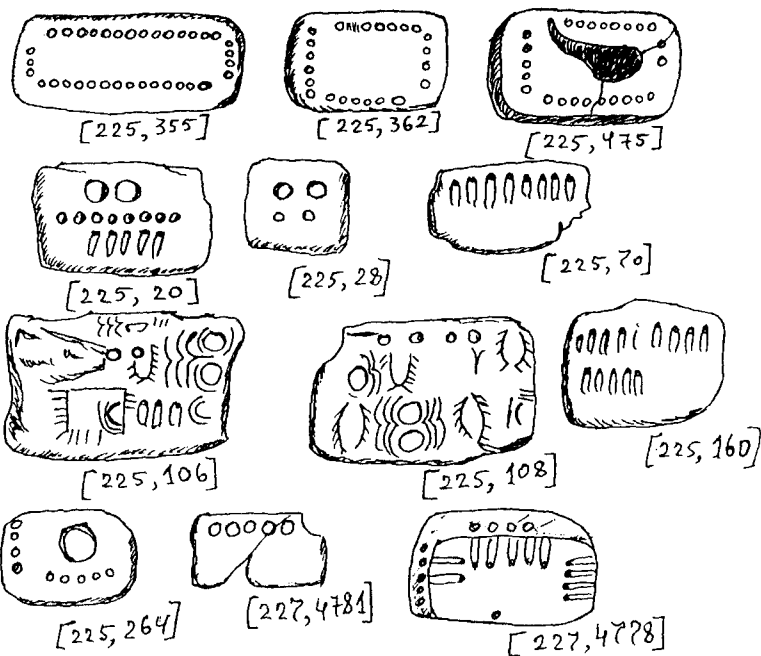 [225, 355]
[225, 362]
[225, 475]
[225, 20]
[225, 28]
[225, 70]
[225, 106]
[225, 108]
[225, 160]
[225, 264]
[227, 4781]
[227, 4778]